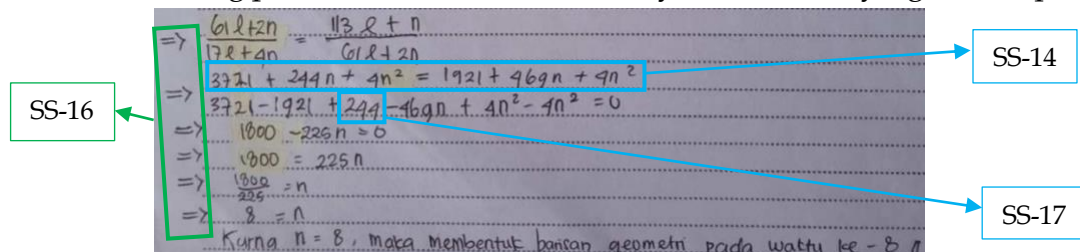 => 61l+2n / 17l+4n = 113l + n / 61l+2n
=> 3721 + 244n + 4n² = 1921 + 469n + 4n²
3721-1921 + 244 -469n + 4n² - 4n² = 0
=> 1800 -225n = 0
=> 1800 = 225n
=> 1800/225 = n
=> 8 = n
Karna n = 8, maka membentuk barisan geometri pada waktu ke - 8
SS-16
SS-14
SS-17